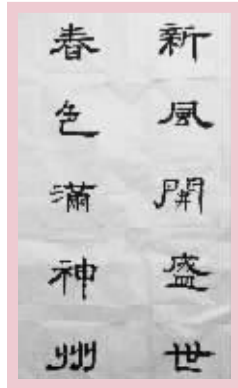 新風開盛世
春色滿神州